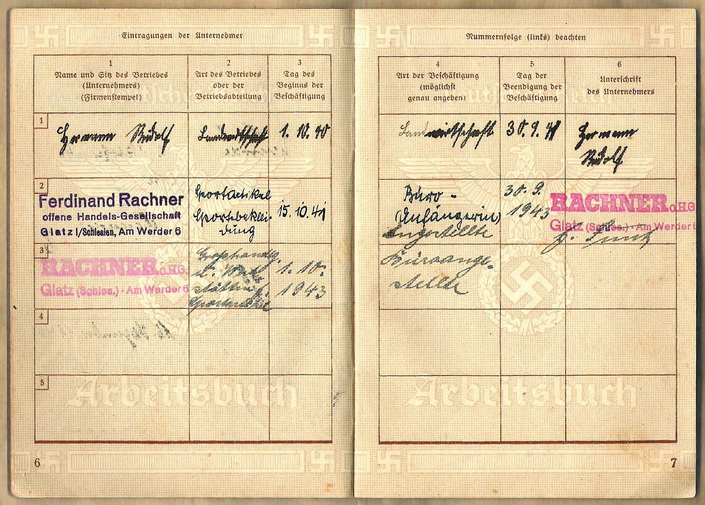 Eintragungen der Unternehmer
1
Name und Sitz des Betriebes
(Unternehmers)
(Firmenstempel)
2
Art des Betriebes
oder der
Betriebsabteilung
3
Tag des
Beginns der
Beschäftigung
1
Hermann Rudolf
Landwirtschaft
1. 10. 40
2
Ferdinand Rachner
offene Handels-Gesellschaft
Glatz I/Schlesien, Am Werder 6
Sportartikel
Sportsbeklei-
dung
15. 10. 41
3
RACHNER o.H.G.
Glatz (Schles.) · Am Werder 6
1. 10.
1943
4
5
Arbeitsbuch
6
Nummernfolge (links) beachten
4
Art der Beschäftigung
(möglichst
genau angeben)
5
Tag der
Beendigung der
Beschäftigung
6
Unterschrift
des Unternehmers
Landwirtschaft
30. 9. 41
Hermann
Rudolf
Büro-
(Anfängerin)
Angestellte
30. 9.
1943
RACHNER o.H.G.
Glatz (Schles.) · Am Werder 6
Büroange-
stellte
Arbeitsbuch
7